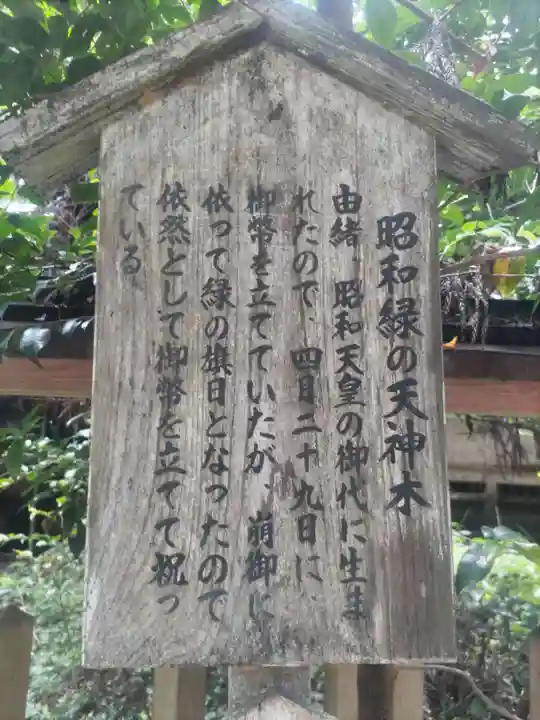 昭和緑の天神木
由緒、昭和天皇の御代に生ま
れたので、四月二十九日に、
御幣を立てていたが、崩御に
依って緑の旗日となったので
依然として御幣を立てて祝っ
ている、